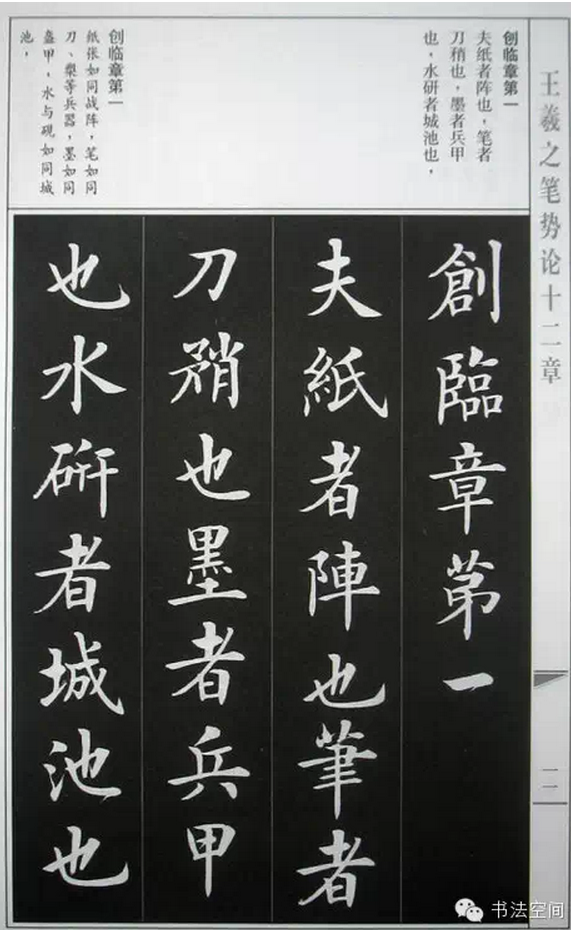 王羲之笔势论十二章
二
创临章第一
夫纸者阵也，笔者
刀稍也，墨者兵甲
也，水研者城池也，
创临章第一
纸张如同战阵，笔如同
刀、槊等兵器，墨如同
盔甲，水与砚如同城
池，
創臨章苐一
夫紙者陣也筆者
刀矟也墨者兵甲
也水研者城池也
书法空间